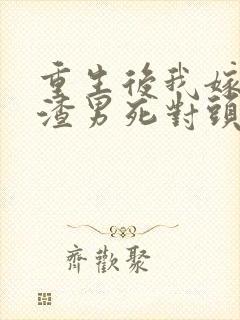 重生後我嫁
渣男死對頭
齊歡聚